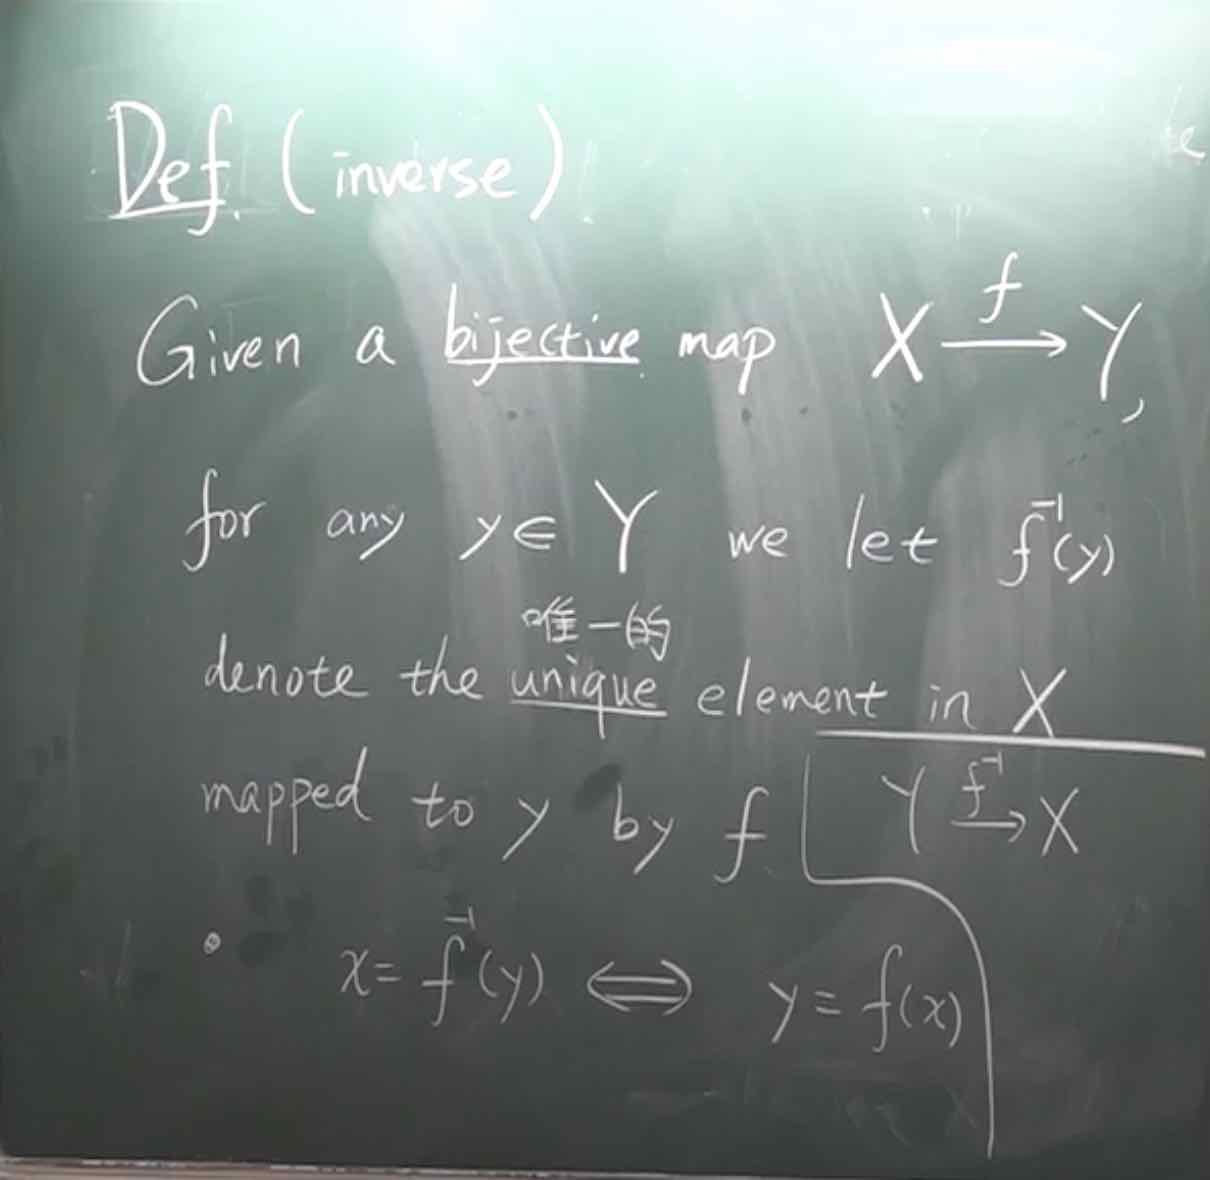 Def. (inverse)
Given a bijective map X →f Y,
for any y ∈ Y we let f⁻¹(y)
唯一的
denote the unique element in X
mapped to y by f
Y →f⁻¹ X
• x = f⁻¹(y) ⟺ y = f(x)